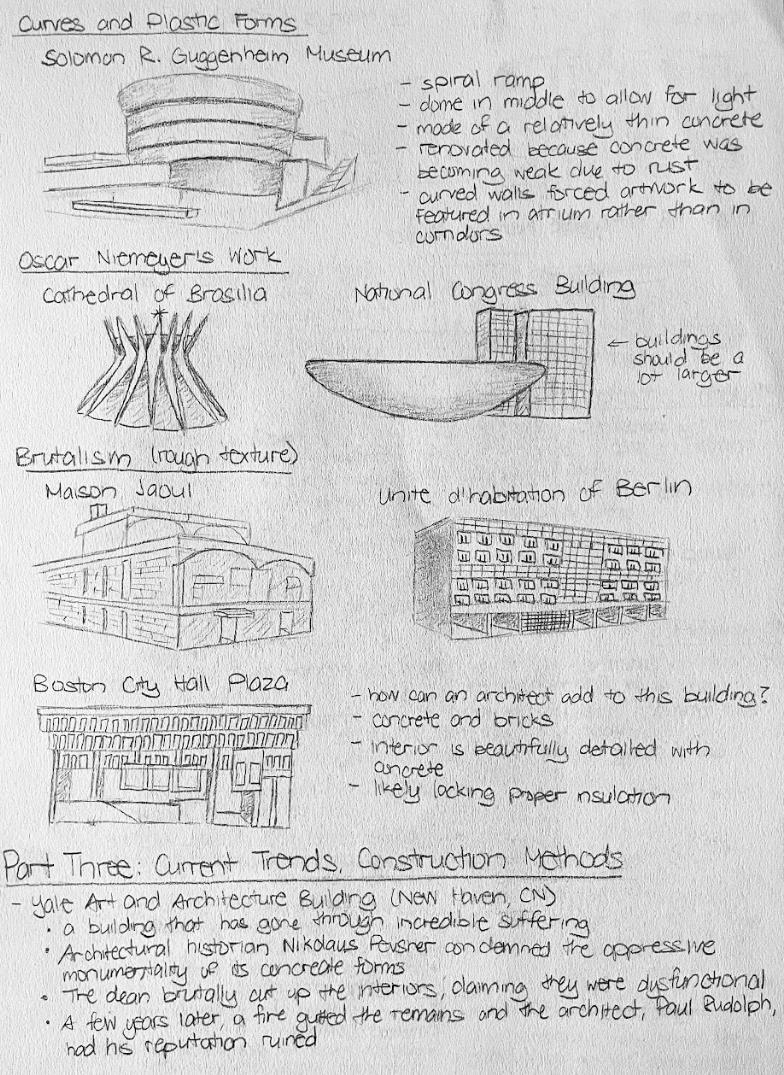 Curves and Plastic Forms
Solomon R. Guggenheim Museum
- spiral ramp
- dome in middle to allow for light
- made of a relatively thin concrete
- renovated because concrete was
becoming weak due to rust
- curved walls forced artwork to be
featured in atrium rather than in
corridors
Oscar Niemeyer's Work
Cathedral of Brasilia
National Congress Building
← buildings
should be a
lot larger
Brutalism (rough texture)
Maison Jaoul
Unite d'habitation of Berlin
Boston City Hall Plaza
- how can an architect add to this building?
- concrete and bricks
- interior is beautifully detailed with
concrete
- likely lacking proper insulation
Part Three: Current Trends, Construction Methods
- Yale Art and Architecture Building (New Haven, CN)
• a building that has gone through incredible suffering
• Architectural historian Nikolaus Pevsner condemned the oppressive
monumentality of its concreate forms
• The dean brutally cut up the interiors, claiming they were dysfunctional
• A few years later, a fire gutted the remains and the architect, Paul Rudolph,
had his reputation ruined